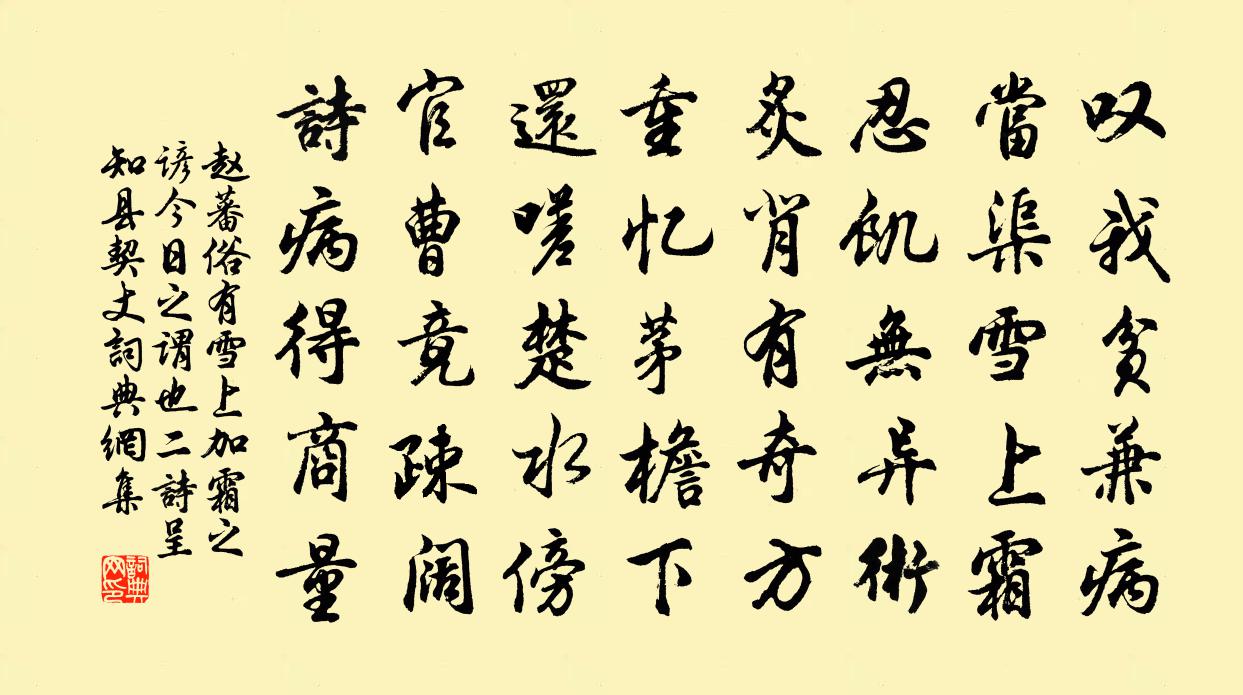 叹我贫兼病
當渠雪上霜
忍飢無异術
炙背有奇方
重忆茅檐下
還嗟楚水傍
官曹竟疎阔
詩病得商量
赵蕃俗有雪上加霜之
谚今日之谓也二詩呈
知县契丈詞典網集
詞典
网印